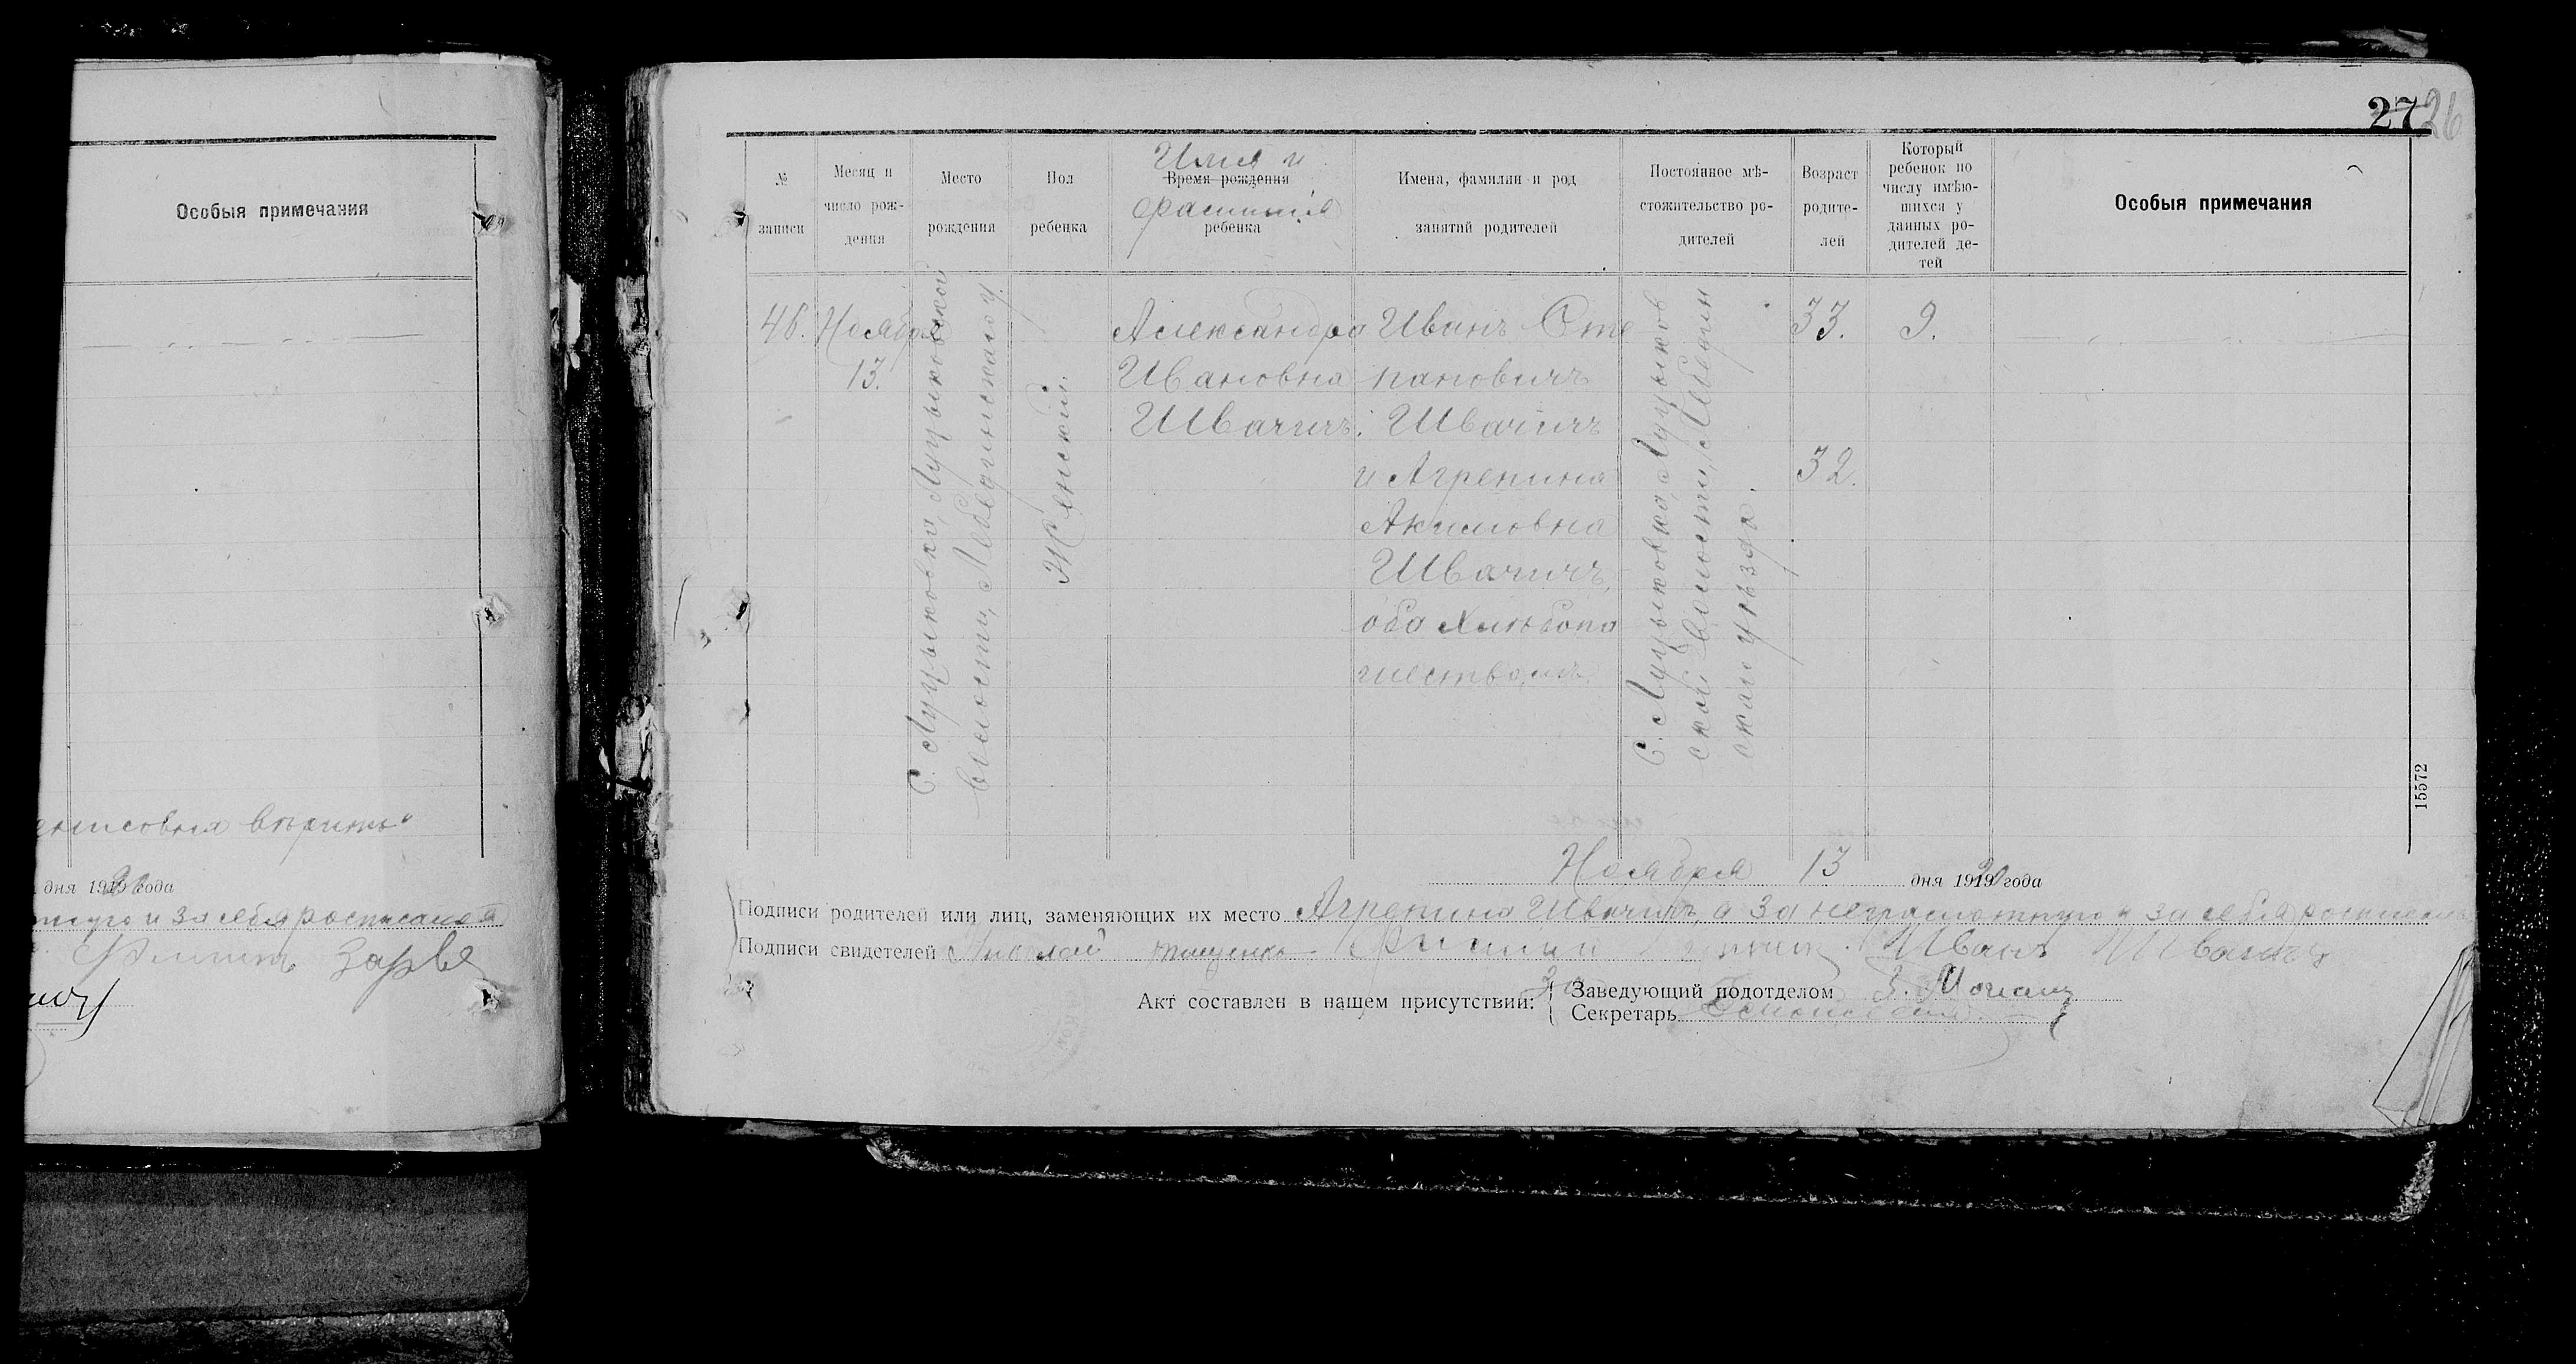 Особыя примечания
вѣритъ"
дня 1920 года
и за себя росписался
Филиппъ Зарва
27 26
№ записи
Месяц и число рождения
Место рождения
Пол ребенка
Имя и
Время рождения
фамилия
ребенка
Имена, фамилии и род занятий родителей
Постоянное мѣстожительство родителей
Возраст родителей
Который ребенок по числу имѣющихся у данных родителей детей
Особыя примечания
46.
Ноября
13.
С. Луцыковка, Луцыковской
волости, Лебединскаго у.
Женский.
Александра
Ивановна
Швачичъ.
Иванъ Сте
пановичъ
Швачичъ
и Агрепина
Акимовна
Швачичъ,
оба хлѣбопа
шествомъ.
С. Луцыковка, Луцыков
ской волости, Лебедин
скаго уѣзда.
33.
32.
9.
15572
Ноября 13 дня 1920 года
Подписи родителей или лиц, заменяющих их место Агрепина Швачичъ, а за неграмотную и за себя росписался
Подписи свидетелей Николай Тищенко Иванъ Швачичъ
Акт составлен в нашем присутствии:
Заведующий подотделом
Секретарь